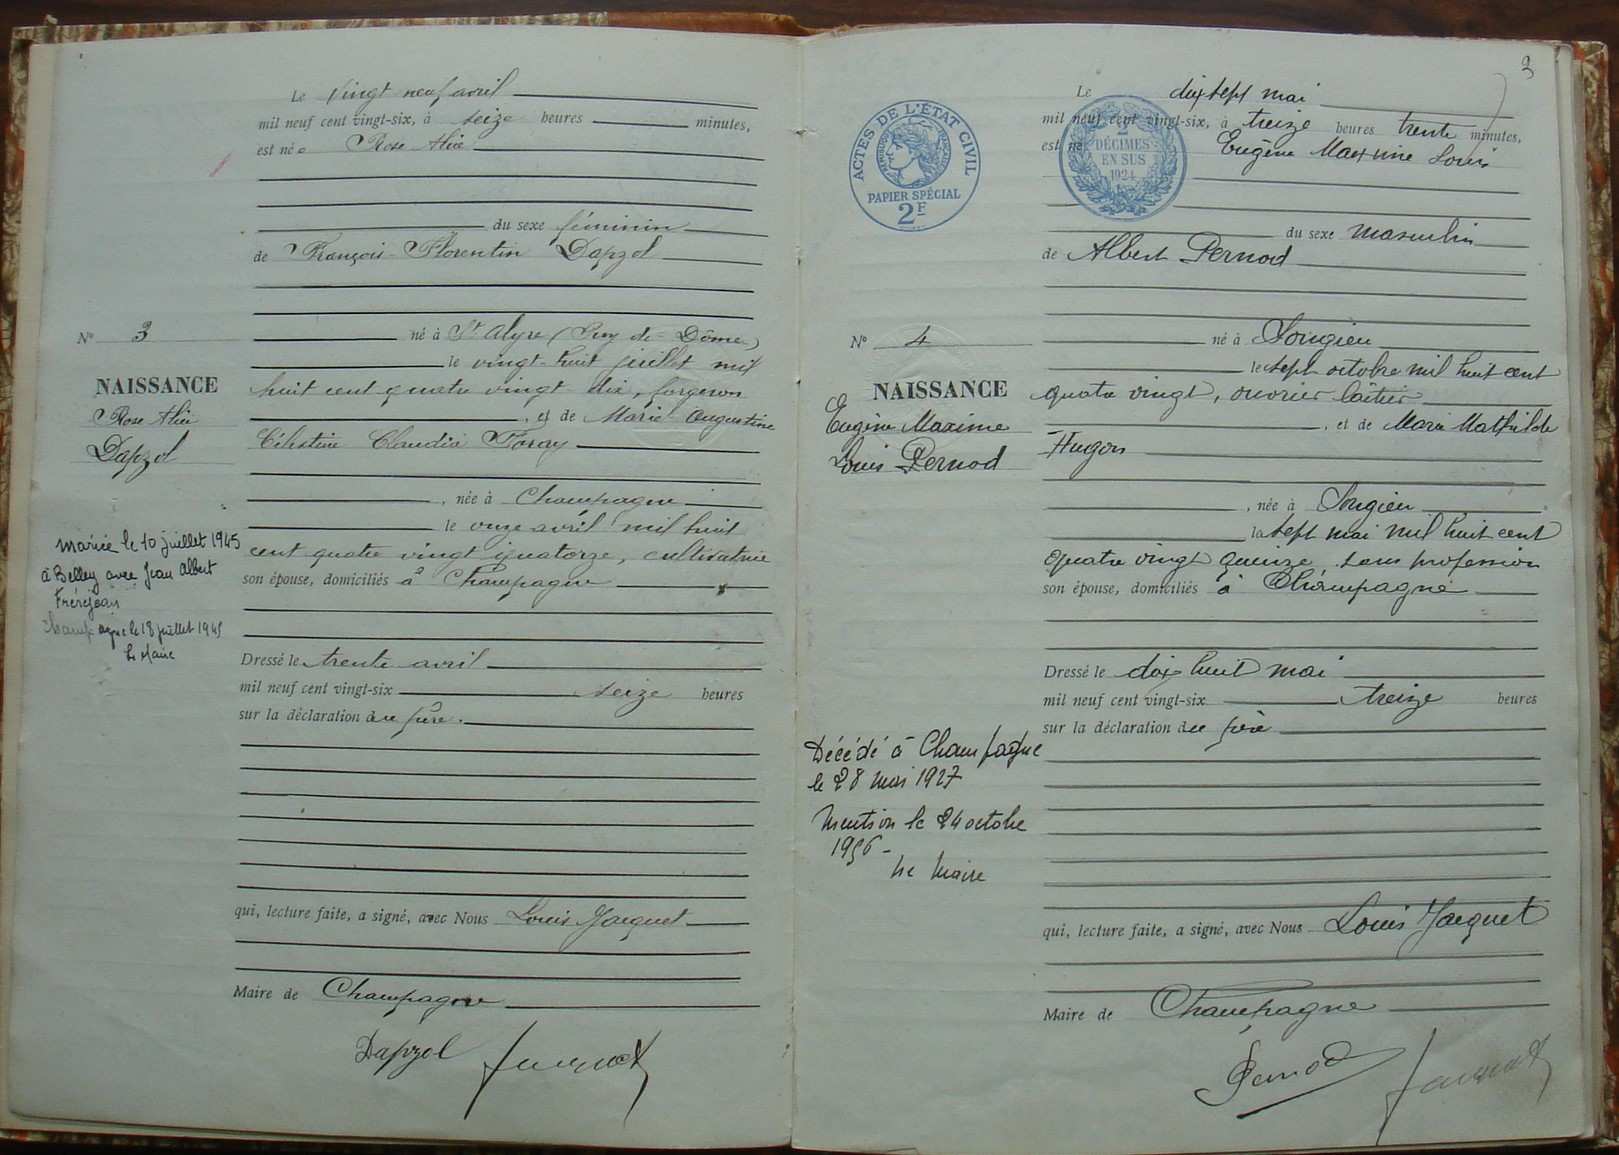 Le vingt neuf avril
mil neuf cent vingt-six, à seize heures minutes,
est née Rose Alice
du sexe féminin
de François Florentin Dapzol
né à St Alyre (Puy de Dôme)
le vingt-huit juillet mil
huit cent quatre vingt dix, forgeron
, et de Marie Augustine
Célestine Claudia Foray
, née à Champagne
le onze avril mil huit
cent quatre vingt quatorze, cultivatrice
son épouse, domiciliés à Champagne
Dressé le trente avril
mil neuf cent vingt-six seize heures
sur la déclaration du père.
qui, lecture faite, a signé, avec Nous Louis Jacquet
Maire de Champagne
Dapzol Jacquet
N° 3
NAISSANCE
Rose Alice
Dapzol
mariée le 10 juillet 1945
à Belley avec Jean Albert
Fréréjean
Champagne le 18 juillet 1945
Le Maire
3
Le dix sept mai
mil neuf cent vingt-six, à treize heures trente minutes,
est né Eugène Maxime Louis
du sexe masculin
de Albert Pernod
né à Songieu
le sept octobre mil huit cent
quatre vingt, ouvrier laitier
, et de Marie Mathilde
Hugon
, née à Songieu
le sept mai mil huit cent
quatre vingt quinze, sans profession
son épouse, domiciliés à Champagne
Dressé le dix huit mai
mil neuf cent vingt-six treize heures
sur la déclaration du père
qui, lecture faite, a signé, avec Nous Louis Jacquet
Maire de Champagne
Pernod Jacquet
N° 4
NAISSANCE
Eugène Maxime
Louis Pernod
Décédé à Champagne
le 28 mai 1927
Mention le 24 octobre
1956 -
Le Maire
ACTES DE L'ÉTAT CIVIL
PAPIER SPÉCIAL
2F
2
DÉCIMES
EN SUS
1924